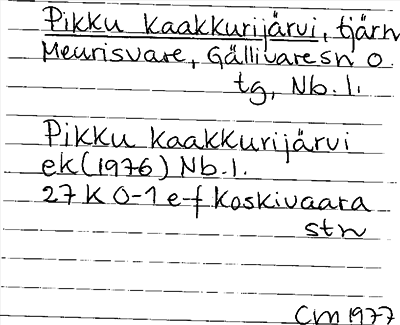 Pikku Kaakkurijärvi, tjärn
Meurisvare, Gällivare sn o.
tg, Nb.l.
Pikku Kaakkurijärvi
ek (1976) Nb.l.
27 K 0-1 e-f Koskivaara
stn
CM 1977